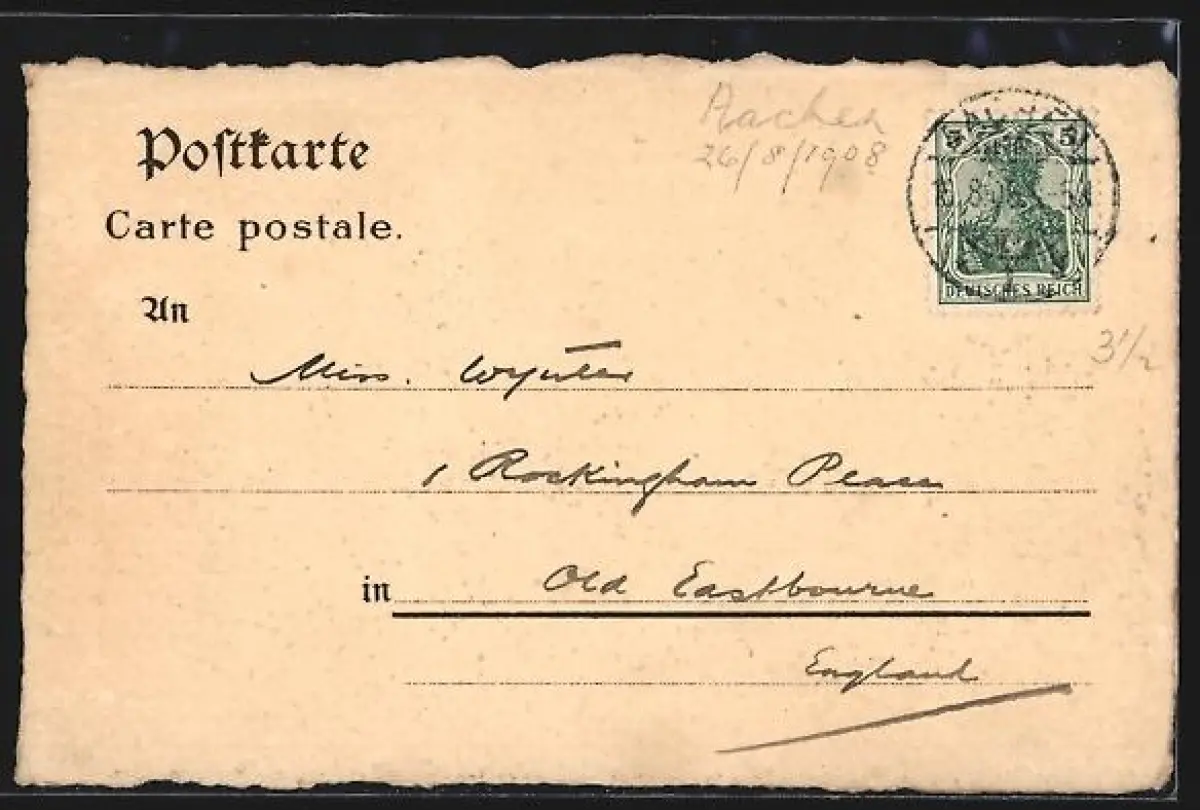 Postkarte
Carte postale.
Aachen
26/8/1908
5 5
DEUTSCHES REICH
3½
An
Miss. Wynter
1 Rockingham Place
in Old Eastbourne
England